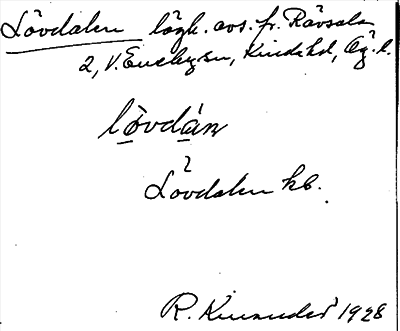 Lövdalen lägh. avs. fr. Rävsala
2, V. Eneby sn, Kinds hd, Ög. l.
lövdán
?
Lövdalen hb.
R. Kinander 1928